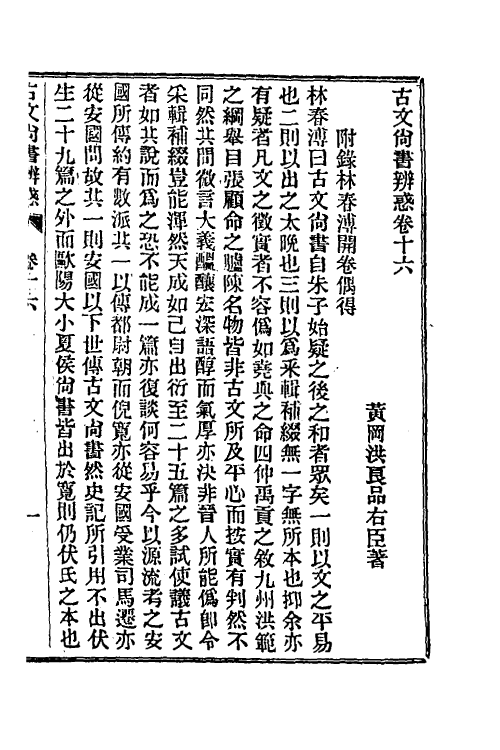 古文尚書辨惑卷十六
黃岡洪良品右臣著
附錄林春溥開卷偶得
林春溥曰古文尚書自朱子始疑之後之和者眾矣一則以文之平易
也二則以出之太晚也三則以爲釆輯補綴無一字無所本也抑余亦
有疑者凡文之徵實者不容僞如堯典之命四仲禹貢之敘九州洪範
之綱舉目張顧命之臚陳名物皆非古文所及平心而按實有判然不
同然其間微言大義醞釀宏深語醇而氣厚亦決非晉人所能僞卽令
釆輯補綴豈能渾然天成如己自出衍至二十五篇之多試使議古文
者如其說而爲之恐不能成一篇亦復談何容易乎今以源流考之安
國所傳約有數派其一以傳都尉朝而倪寬亦從安國受業司馬遷亦
從安國問故其一則安國以下世傳古文尚書然史記所引用不出伏
生二十九篇之外而歐陽大小夏侯尚書皆出於寬則仍伏氏之本也
古文尚書辨惑
卷十六
一